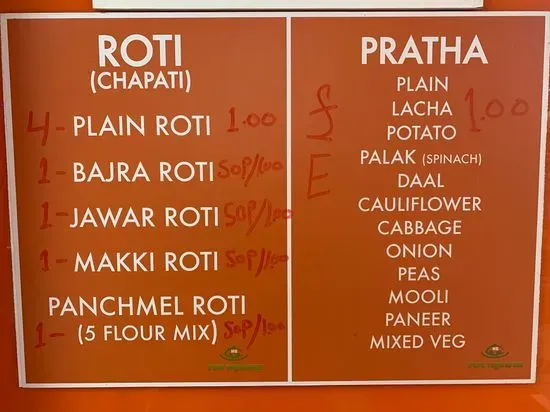 ROTI
(CHAPATI)
4- PLAIN ROTI 1.00
1- BAJRA ROTI 50P/1.00
1- JAWAR ROTI 50P/1.00
1- MAKKI ROTI 50P/1.00
PANCHMEL ROTI
1- (5 FLOUR MIX) 50P/1.00
PRATHA
PLAIN
LACHA 1.00
POTATO
PALAK (SPINACH)
DAAL
CAULIFLOWER
CABBAGE
ONION
PEAS
MOOLI
PANEER
MIXED VEG
£
E